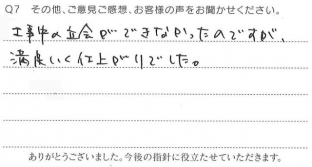 Q7 その他、ご意見ご感想、お客様の声をお聞かせください。
工事中の立会ができなかったのですが、
満足いく仕上がりでした。
ありがとうございました。今後の指針に役立たせていただきます。